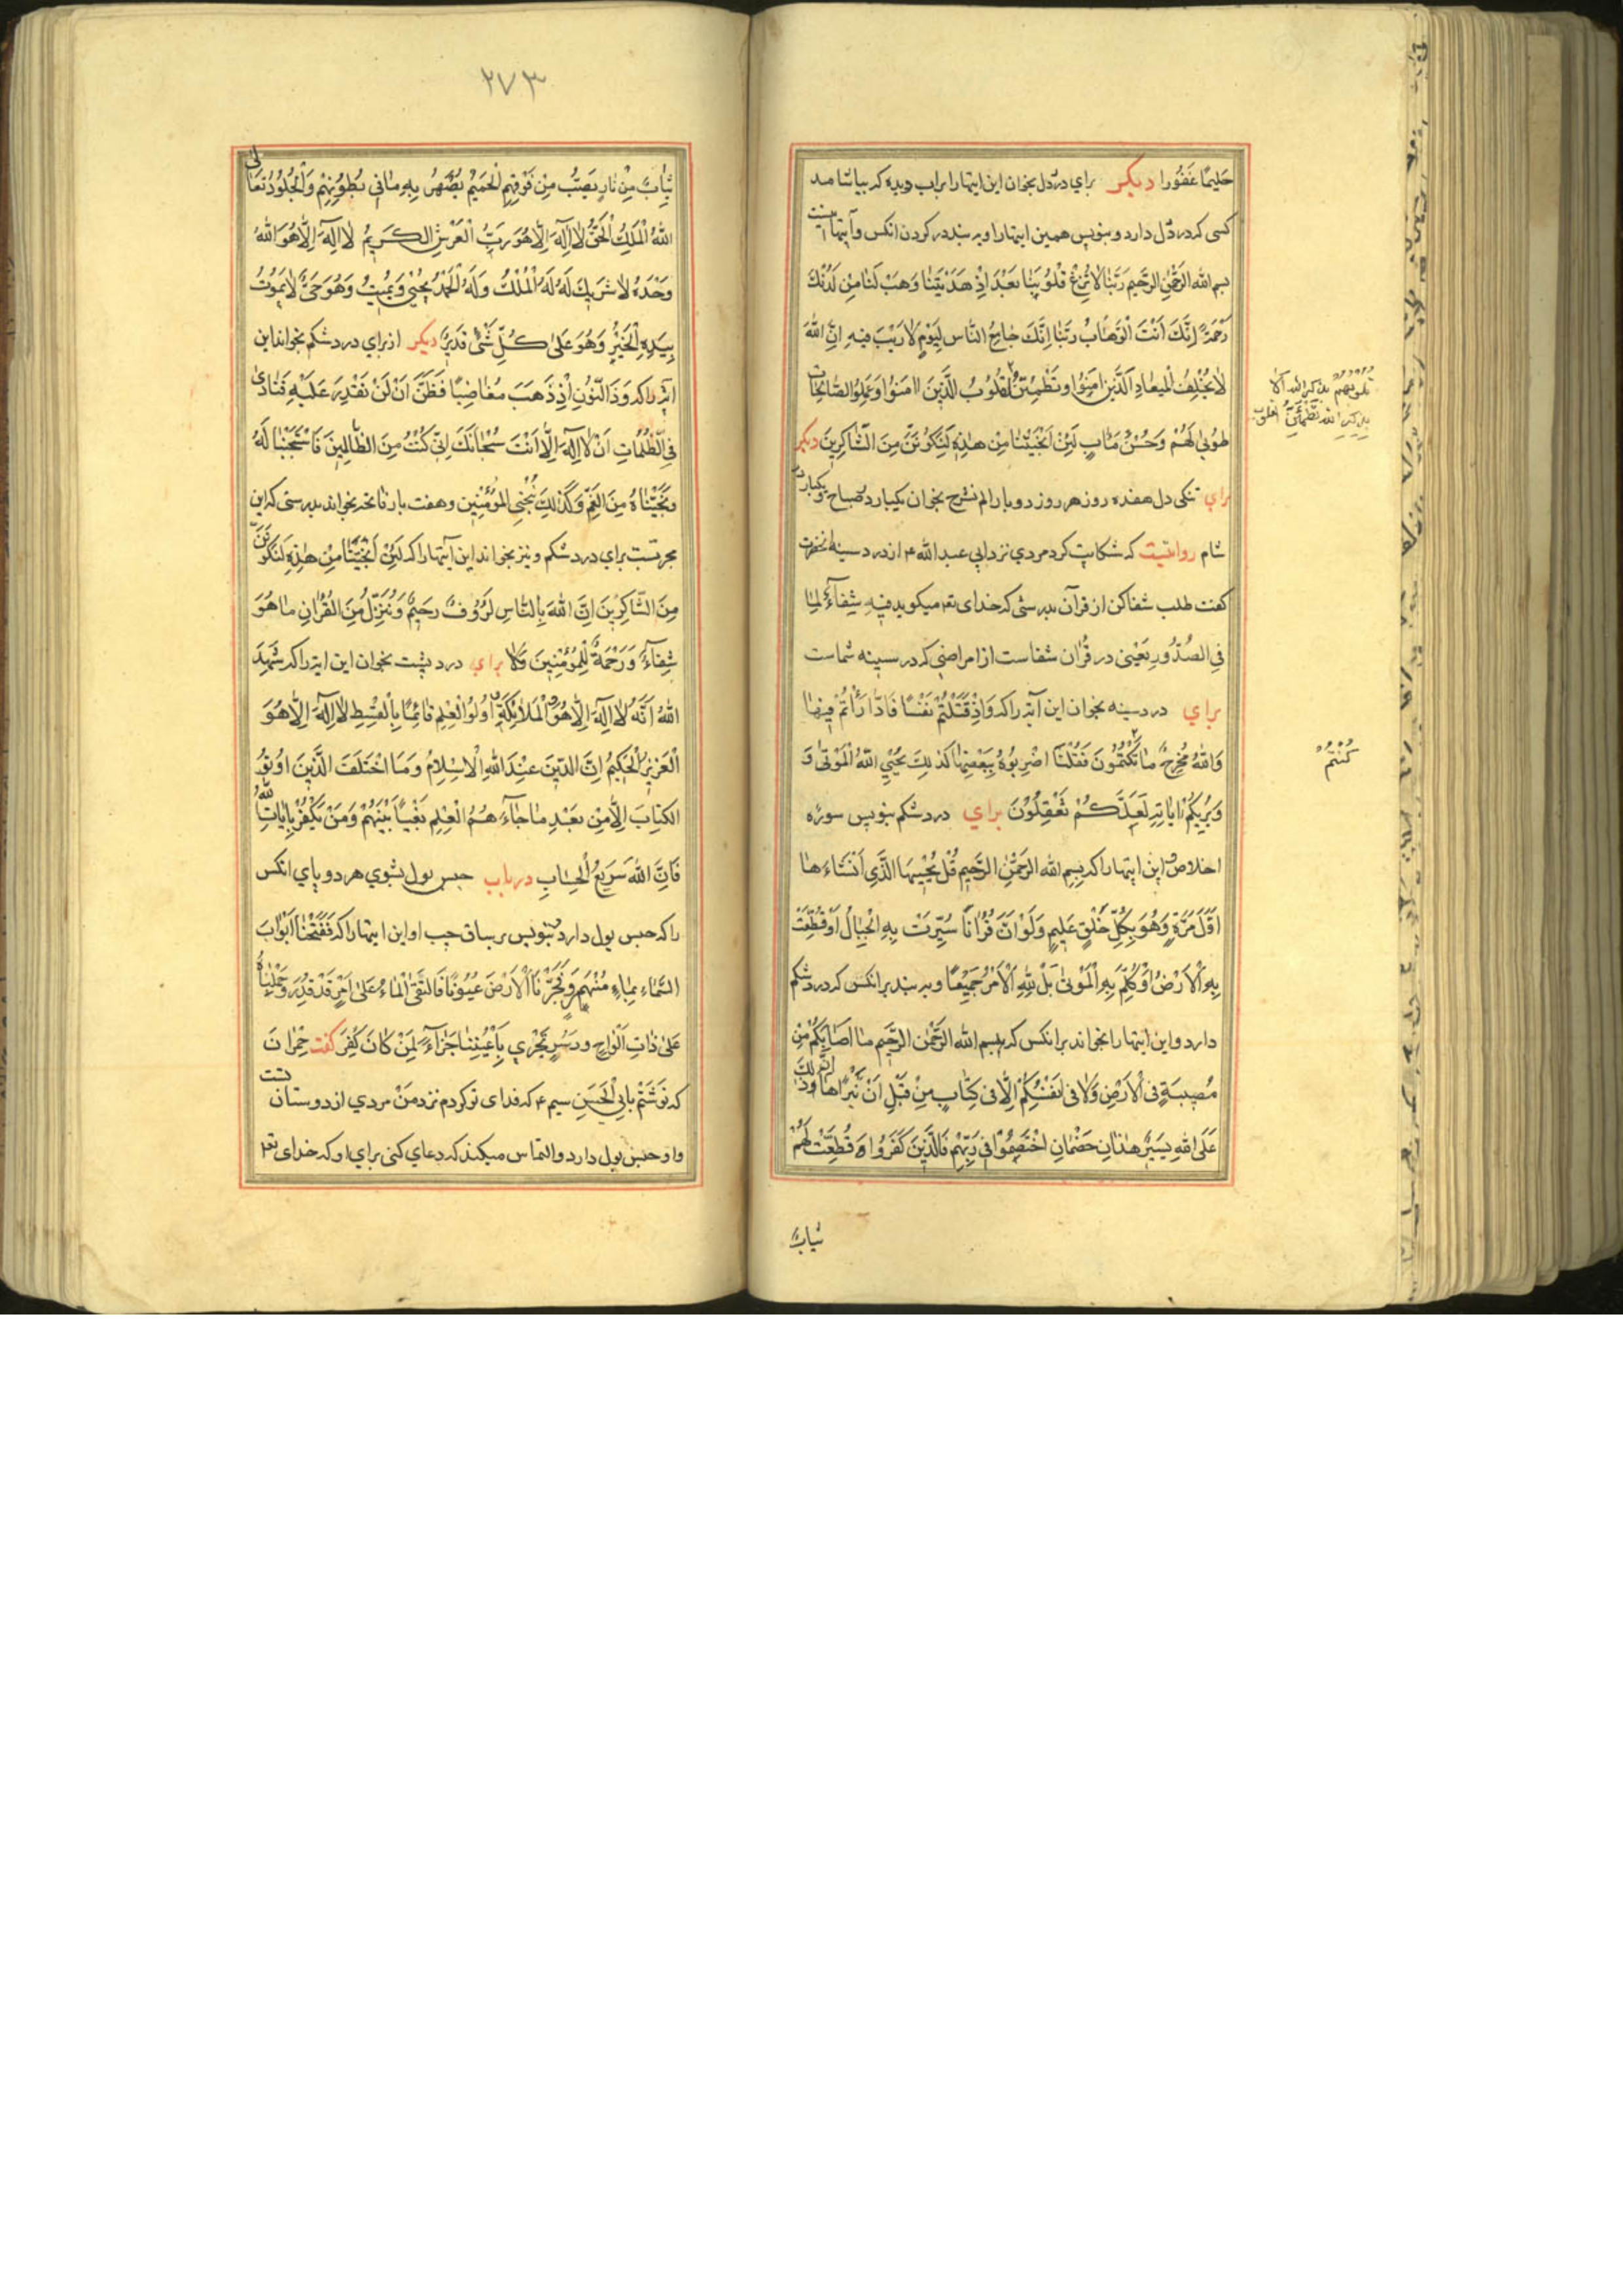 حَلیمًا غَفُورا دیکر برای درد دل بخوان این ایتها را بر اب و بده که بیاشامد
کسی که درد دل دارد و بنویس همین ایتها را و ببند در کردن انکس و آیتها اینست
بسم الله الرَّحْمٰنِ الرَّحیم رَبَّنٰا لاٰ تُزِغْ قُلُوبَنٰا بَعْدَ اِذْ هَدَیْتَنٰا وَهَبْ لَنٰا مِنْ لَدُنْكَ
رَحْمَةً اِنَّكَ اَنْتَ الْوَهّٰابُ رَبَّنٰا اِنَّكَ جٰامِعُ النّٰاسِ لِیَوْمٍ لاٰ رَیْبَ فیهِ اِنَّ اللهَ
لاٰ یُخْلِفُ الْمیعٰادِ اَلَّذینَ اٰمَنُوا وَتَطْمَئِنُّ الْقُلُوبُ الَّذینَ اٰمَنُوا وَعَمِلُوا الصّٰالِحٰاتِ
طُوبٰی لَهُمْ وَحُسْنُ مَاٰبٍ لَئِنْ اَنْجَیْتَنٰا مِنْ هٰذِهِ لَنَکُونَنَّ مِنَ الشّٰاکِرینَ دیکر
برای تنکی دل هفده روز هر روز دو بار الم نشرح بخوان یکبار در صباح و یکبار در
شام روایتست که شکایت کرد مردی نزد ابی عبد الله ۴ از درد سینه انحضرت
کفت طلب شفا کن از قرآن بدرستی که خدای تعم میکوید فیهِ شِفٰآءٌ لِمٰا
فِی الصُّدُورِ یَعْنی در قُرٰان شفاست از امراضی که در سینه شماست
برای درد سینه بخوان این آیه را که وَاِذْ قَتَلْتُمْ نَفْسًا فَادّٰارَأْتُمْ فیهٰا
وَاللهُ مُخْرِجٌ مٰا تَکْتُمُونَ فَقُلْنَا اضْرِبُوهُ بِبَعْضِهٰا کَذٰلِكَ یُحْیِی اللهُ الْمَوْتٰی وَ
وَیُریکُمْ اٰیٰاتِهِ لَعَلَّکُمْ تَعْقِلُوْنَ برای درد شکم بنویس سورۀ
اخلاص و این ایتها را که بِسمِ الله الرَّحْمٰنِ الرَّحیمِ قُلْ یُحْیِیهَا الَّذی اَنْشَاءَهٰا
اَوَّلَ مَرَّةٍ وَهُوَ بِکُلِّ خَلْقٍ عَلیمٍ وَلَوْ اَنَّ قُرْاٰنًا سُیِّرَتْ بِهِ الْجِبٰالُ اَوْ قُطِّعَتْ
بِهِ الْاَرْضُ اَوْ کُلِّمَ بِهِ الْمَوْتٰی بَلْ لِلّٰهِ الْاَمْرُ جَمیْعًا و ببند بر انکس که درد شکم
دارد و این ایتها را بخواند بر انکس که بسم الله الرَّحْمٰن الرَّحیم مٰا اَصٰابَکُمْ مِنْ
مُصیبَةٍ فِی الْاَرْضِ وَلاٰ فی اَنْفُسِکُمْ اِلّٰا فی کِتٰابٍ مِنْ قَبْلِ اَنْ نَبْرَاَهٰا اِنَّ ذٰلِكَ
عَلَی اللهِ یَسیرٌ هٰذٰانِ خَصْمٰانِ اخْتَصَمُوْا فی رَبِّهِمْ فَالَّذینَ کَفَرُوا قُطِّعَتْ لَهُمْ
ثیابٌ
قلوبهم بذکر الله الا
بذکر الله تَطمَئِنُّ القلوب
کُنْتُمْ
۲۷۳
ثِیٰابٌ مِنْ نٰارٍ یُصَبُّ مِنْ فَوْقِهِمُ الْحَمیْمُ یُصْهَرُ بِهِ مٰا فی بُطُوْنِهِمْ وَالْجُلُودُ تَعٰالٰی
اللهُ الْمَلِكُ الْحَقُّ لاٰ اِلٰهَ اِلّٰا هُوَ رَبُّ الْعَرْشِ الکَریمُ لاٰ اِلٰهَ اِلّٰا هُوَ اللهُ
وَحْدَهُ لاٰ شَریكَ لَهُ لَهُ الْمُلْكُ وَلَهُ الْحَمْدُ یُحْیی وَیُمیتُ وَهُوَ حَیٌّ لاٰ یَمُوتُ
بِیَدِهِ الْخَیْرُ وَهُوَ عَلٰی کُلِّ شَیْءٍ قَدیرٌ دیکر از برای درد شکم بخواند این
ایه را که وَذَا النُّوْنِ اِذْ ذَهَبَ مُغٰاضِبًا فَظَنَّ اَنْ لَنْ نَقْدِرَ عَلَیْهِ فَنٰادٰی
فِی الظُّلُمٰاتِ اَنْ لاٰ اِلٰهَ اِلّٰا اَنْتَ سُبْحٰانَكَ اِنّی کُنْتُ مِنَ الظّٰالِمینَ فَاسْتَجَبْنٰا لَهُ
وَنَجَّیْنٰاهُ مِنَ الْغَمِّ وَکَذٰلِكَ نُنْجِی الْمُؤْمِنین و هفت بار فاتحه بخواند بدرستی که این
مجربست برای درد شکم و نیز بخواند این آیتها را که لَئِنْ اَنْجَیْتَنٰا مِنْ هٰذِهِ لَنَکُونَنَّ
مِنَ الشّٰاکِرینَ اِنَّ اللهَ بِالنّٰاسِ لَرَؤُوفٌ رَحیمٌ وَنُنَزِّلُ مِنَ الْقُرْاٰنِ مٰا هُوَ
شِفٰآءٌ وَرَحْمَةٌ لِلْمُؤْمِنینَ وَلاٰ برای درد پشت بخوان این ایه را که شَهِدَ
اللهُ اَنَّهُ لاٰ اِلٰهَ اِلّٰا هُوَ وَالْمَلاٰئِکَةُ وَاُولُوا الْعِلْمِ قٰائِمًا بِالْقِسْطِ لاٰ اِلٰهَ اِلّٰا هُوَ
الْعَزیزُ الْحَکیمُ اِنَّ الدّینَ عِنْدَ اللهِ الْاِسْلاٰمُ وَمَا اخْتَلَفَ الَّذینَ اُوتُوا
الکِتٰابَ اِلّٰا مِنْ بَعْدِ مٰا جٰآءَهُمُ الْعِلْمُ بَغْیًا بَیْنَهُمْ وَمَنْ یَکْفُرْ بِاٰیٰاتِ اللهِ
فَاِنَّ اللهَ سَریعُ الْحِسٰابِ در باب حبس بول بشوی هر دو پای انکس
را که حبس بول دارد و بنویس بر ساق چپ او این ایتها را که فَفَتَحْنٰا اَبْوٰابَ
السَّمٰاءِ بِمٰاءٍ مُنْهَمِرٍ وَفَجَّرْنَا الْاَرْضَ عُیُونًا فَالْتَقَی الْمٰاءُ عَلٰی اَمْرٍ قَدْ قُدِرَ وَحَمَلْنٰاهُ
عَلٰی ذٰاتِ اَلْوٰاحٍ وَدُسُرٍ تَجْری بِاَعْیُنِنٰا جَزٰآءً لِمَنْ کٰانَ کُفِرَ کفت حمران
که نَوَشْتَم بابی الْحَسَنِ سیم ۴ که فدای تو کردم نزد مَنْ مردی از دوستان تست
و او حبس بول دارد و التماس میکند که دعای کنی برای او که خدای تعم